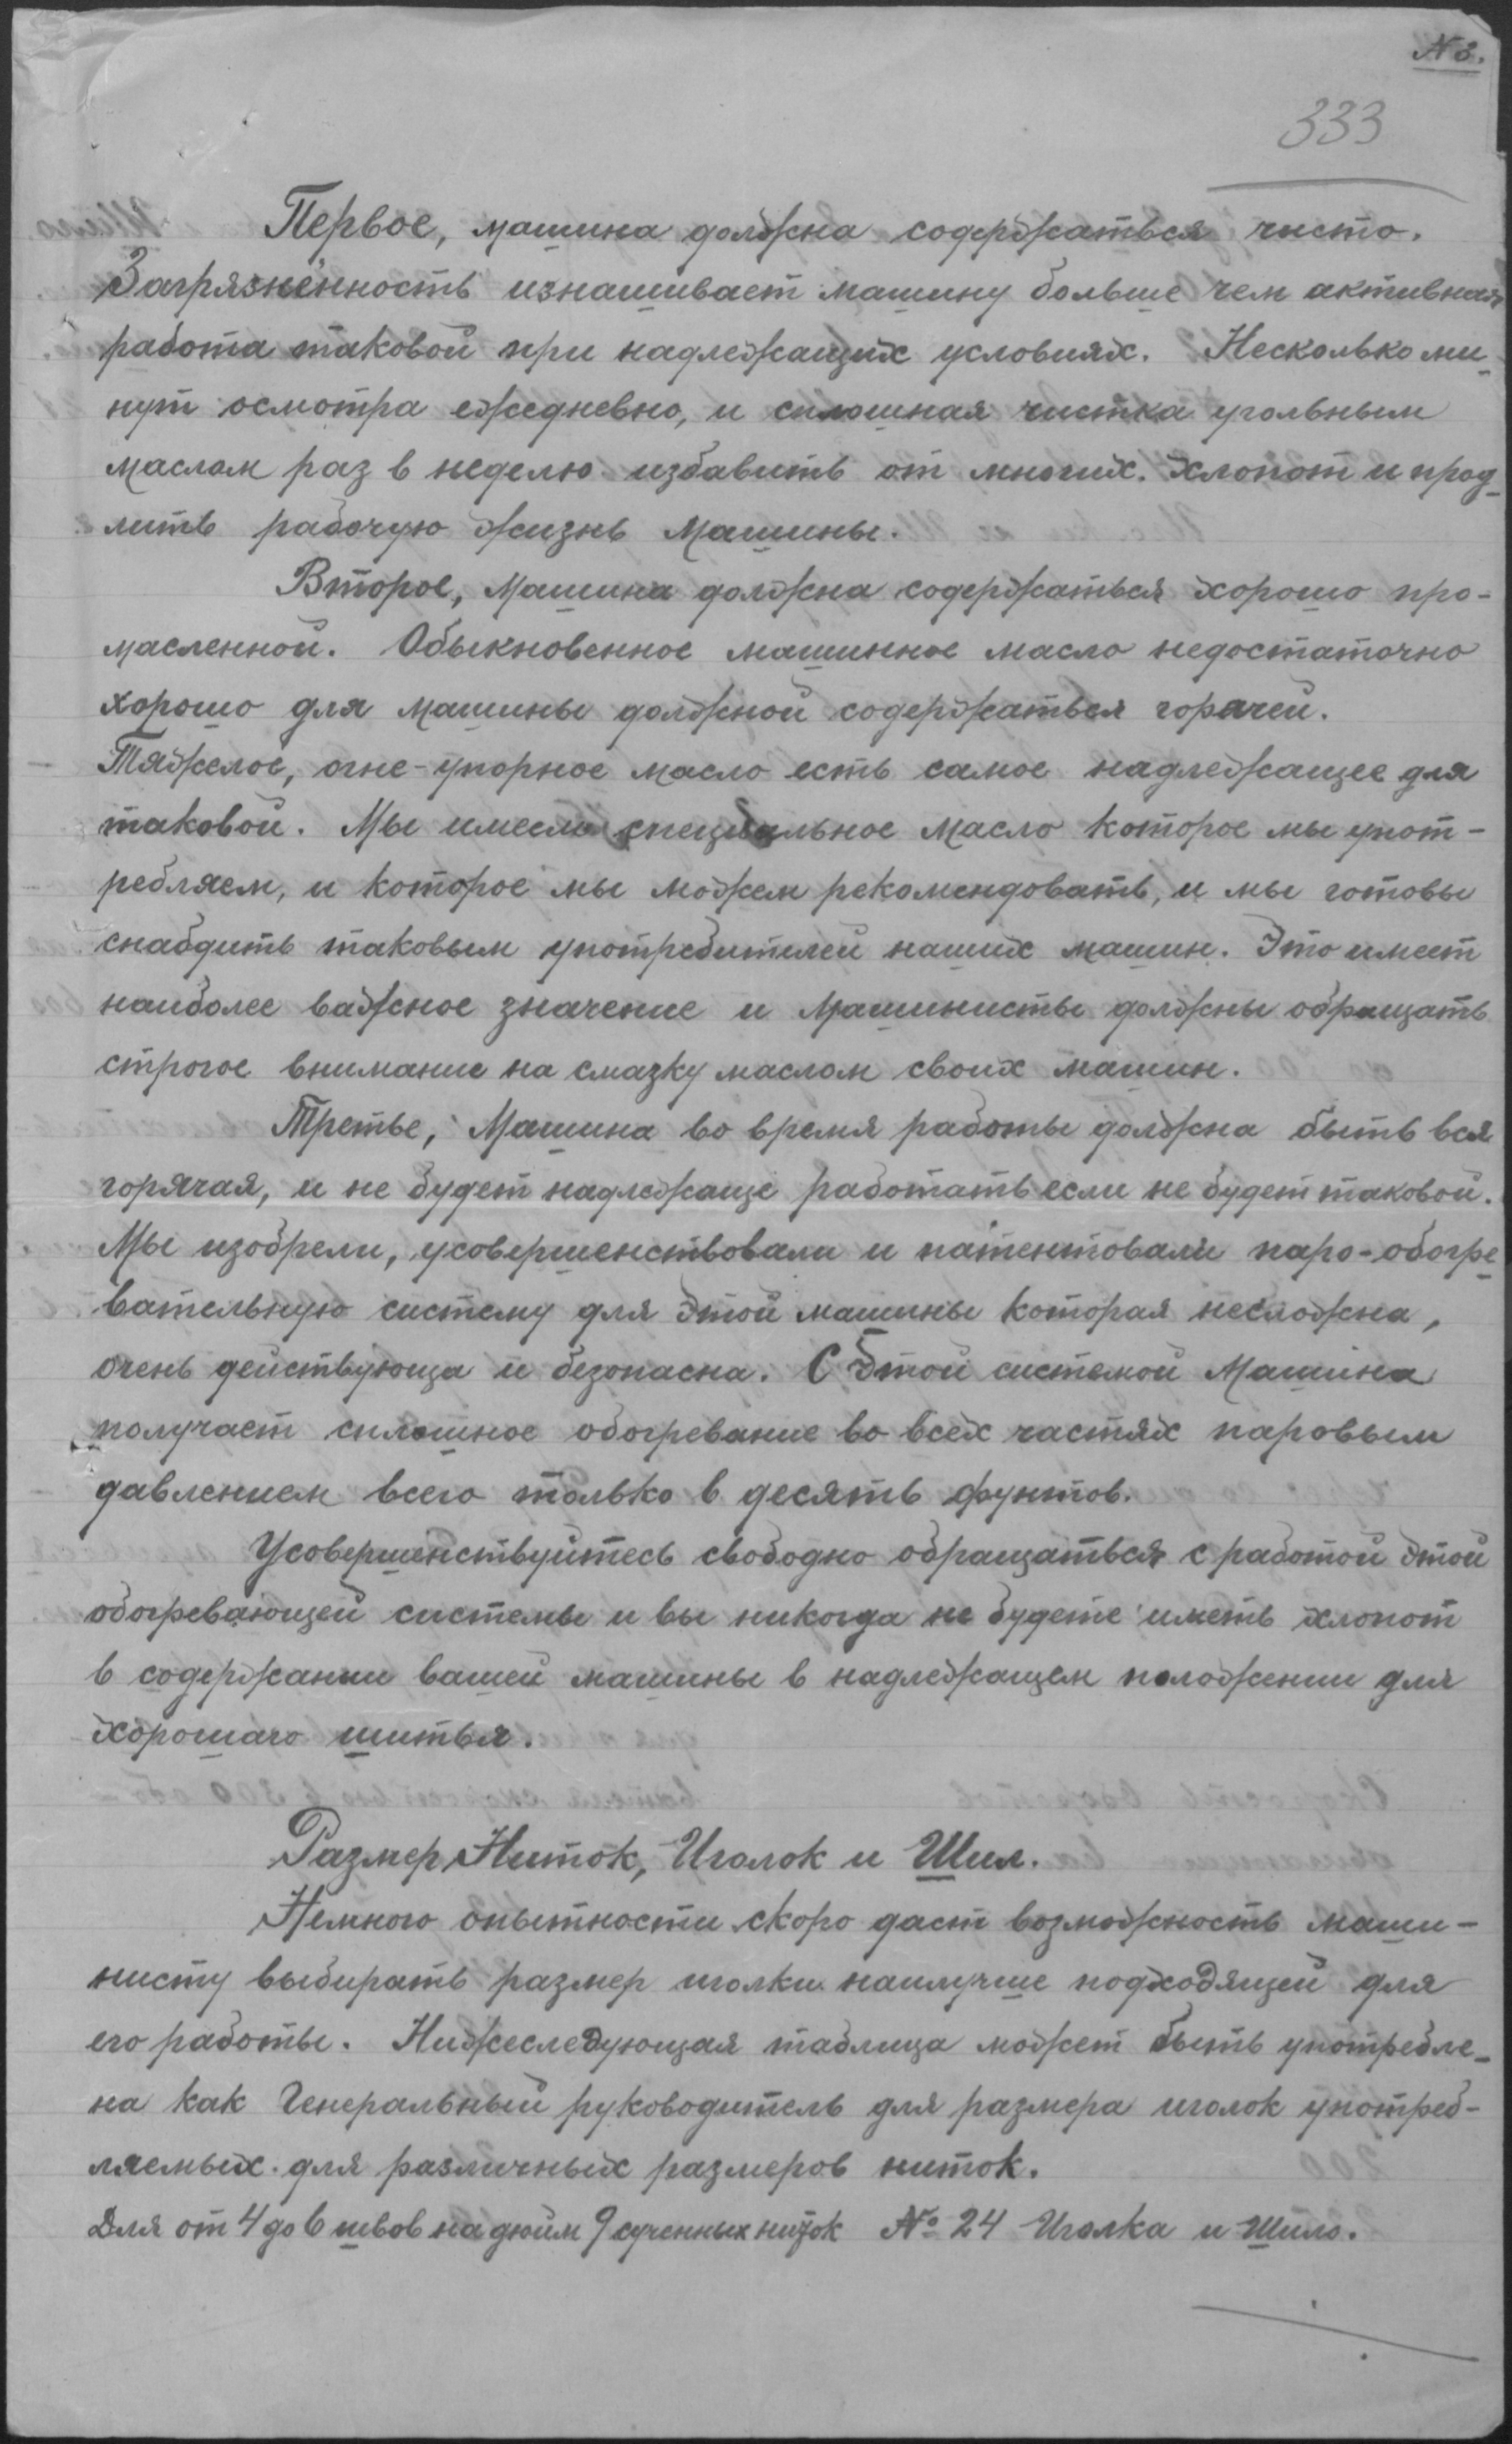 N 3.
333
Первое, машина должна содержаться чисто.
Загрязнённость изнашивает машину больше чем активная
работа таковой при надлежащих условиях. Несколько ми-
нут осмотра ежедневно, и сплошная чистка угольным
маслом раз в неделю избавить от многих хлопот и прод-
лить рабочую жизнь машины.
Второе, машина должна содержаться хорошо про-
масленной. Обыкновенное машинное масло недостаточно
хорошо для машины должной содержаться горячей.
Тяжелое, огне-упорное масло есть самое надлежащее для
таковой. Мы имеем специальное масло которое мы упот-
ребляем, и которое мы можем рекомендовать, и мы готовы
снабдить таковым употребителей наших машин. Это имеет
наиболее важное значение и машинисты должны обращать
строгое внимание на смазку маслом своих машин.
Третье, Машина во время работы должна быть вся
горячая, и не будет надлежаще работать если не будет таковой.
Мы изобрели, усовершенствовали и патентовали паро-обогре-
вательную систему для этой машины которая несложна,
очень действующа и безопасна. С этой системой Машина
получает сплошное обогревание во всех частях паровым
давлением всего только в десять фунтов.
Усовершенствуйтесь свободно обращаться с работой этой
обогревающей системы и вы никогда не будете иметь хлопот
в содержании вашей машины в надлежащем положении для
хорошаго шитья.
Размер Ниток, Иголок и Шил.
Немного опытности скоро даст возможность маши-
нисту выбирать размер иголки наилучше подходящей для
его работы. Нижеследующая таблица может быть употребле-
на как Генеральный руководитель для размера иголок употреб-
ляемых для различных размеров ниток.
Для от 4 до 6 швов на дюйм 9 сученных ниток № 24 Иголка и Шило.